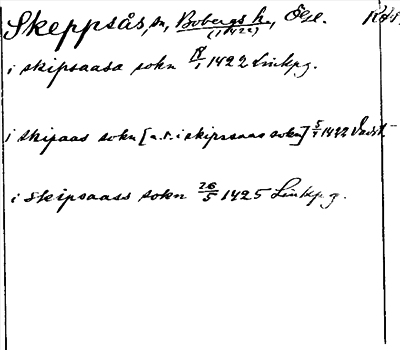 Skeppsås, sn, Bobergs hd, Ögl.
(1/1 1422)
i skipsaasa sokn 1422 Linkpg.
i skipaas sokn [a.s. i skipssaas sokn] 5/7 1422
i Skipsaass sokn 26/5 1425 Linkpg.